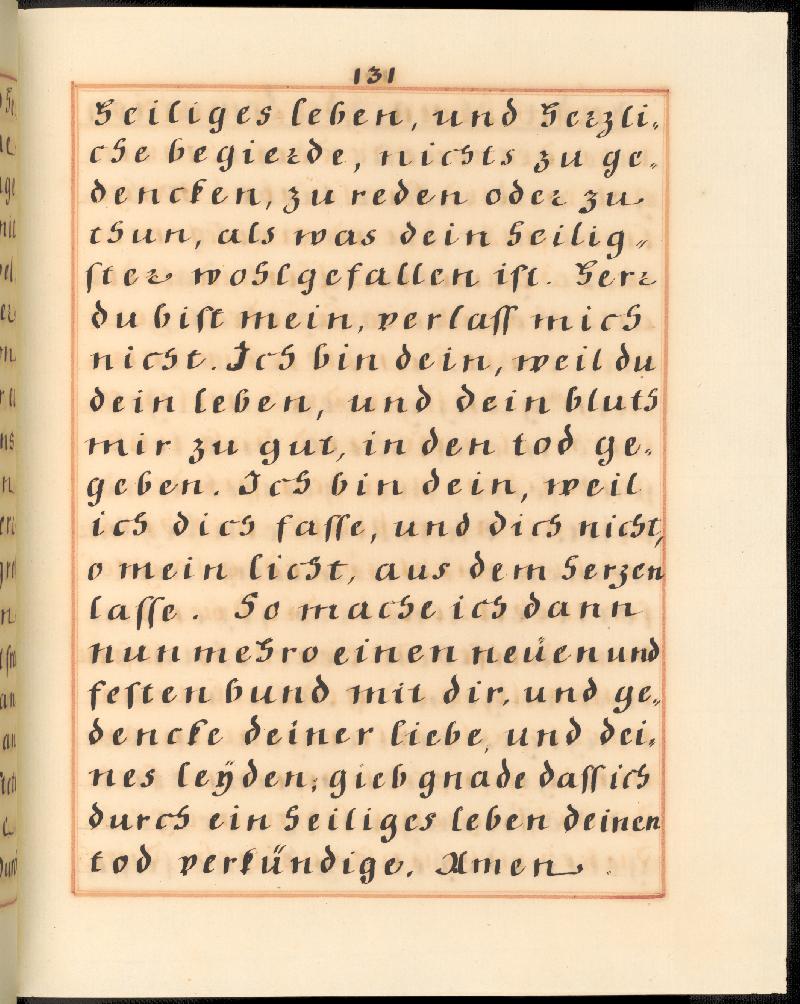 131
Heiliges leben, und Herzli-
che begierde, nichts zu ge-
dencken, zu reden oder zu
thun, als was dein heilig-
ster wohlgefallen ist. Herr
du bist mein, verlass mich
nicht. Ich bin dein, weil du
dein leben, und dein bluth
mir zu gut, in den tod ge-
geben. Ich bin dein, weil
ich dich fasse, und dich nicht,
o mein licht, aus dem herzen
lasse. So mache ich dann
nunmehro einen neüen und
festen bund mit dir, und ge-
dencke deiner liebe, und dei-
nes leÿden; gieb gnade dass ich
durch ein heiliges leben deinen
tod verkündige. Amen.